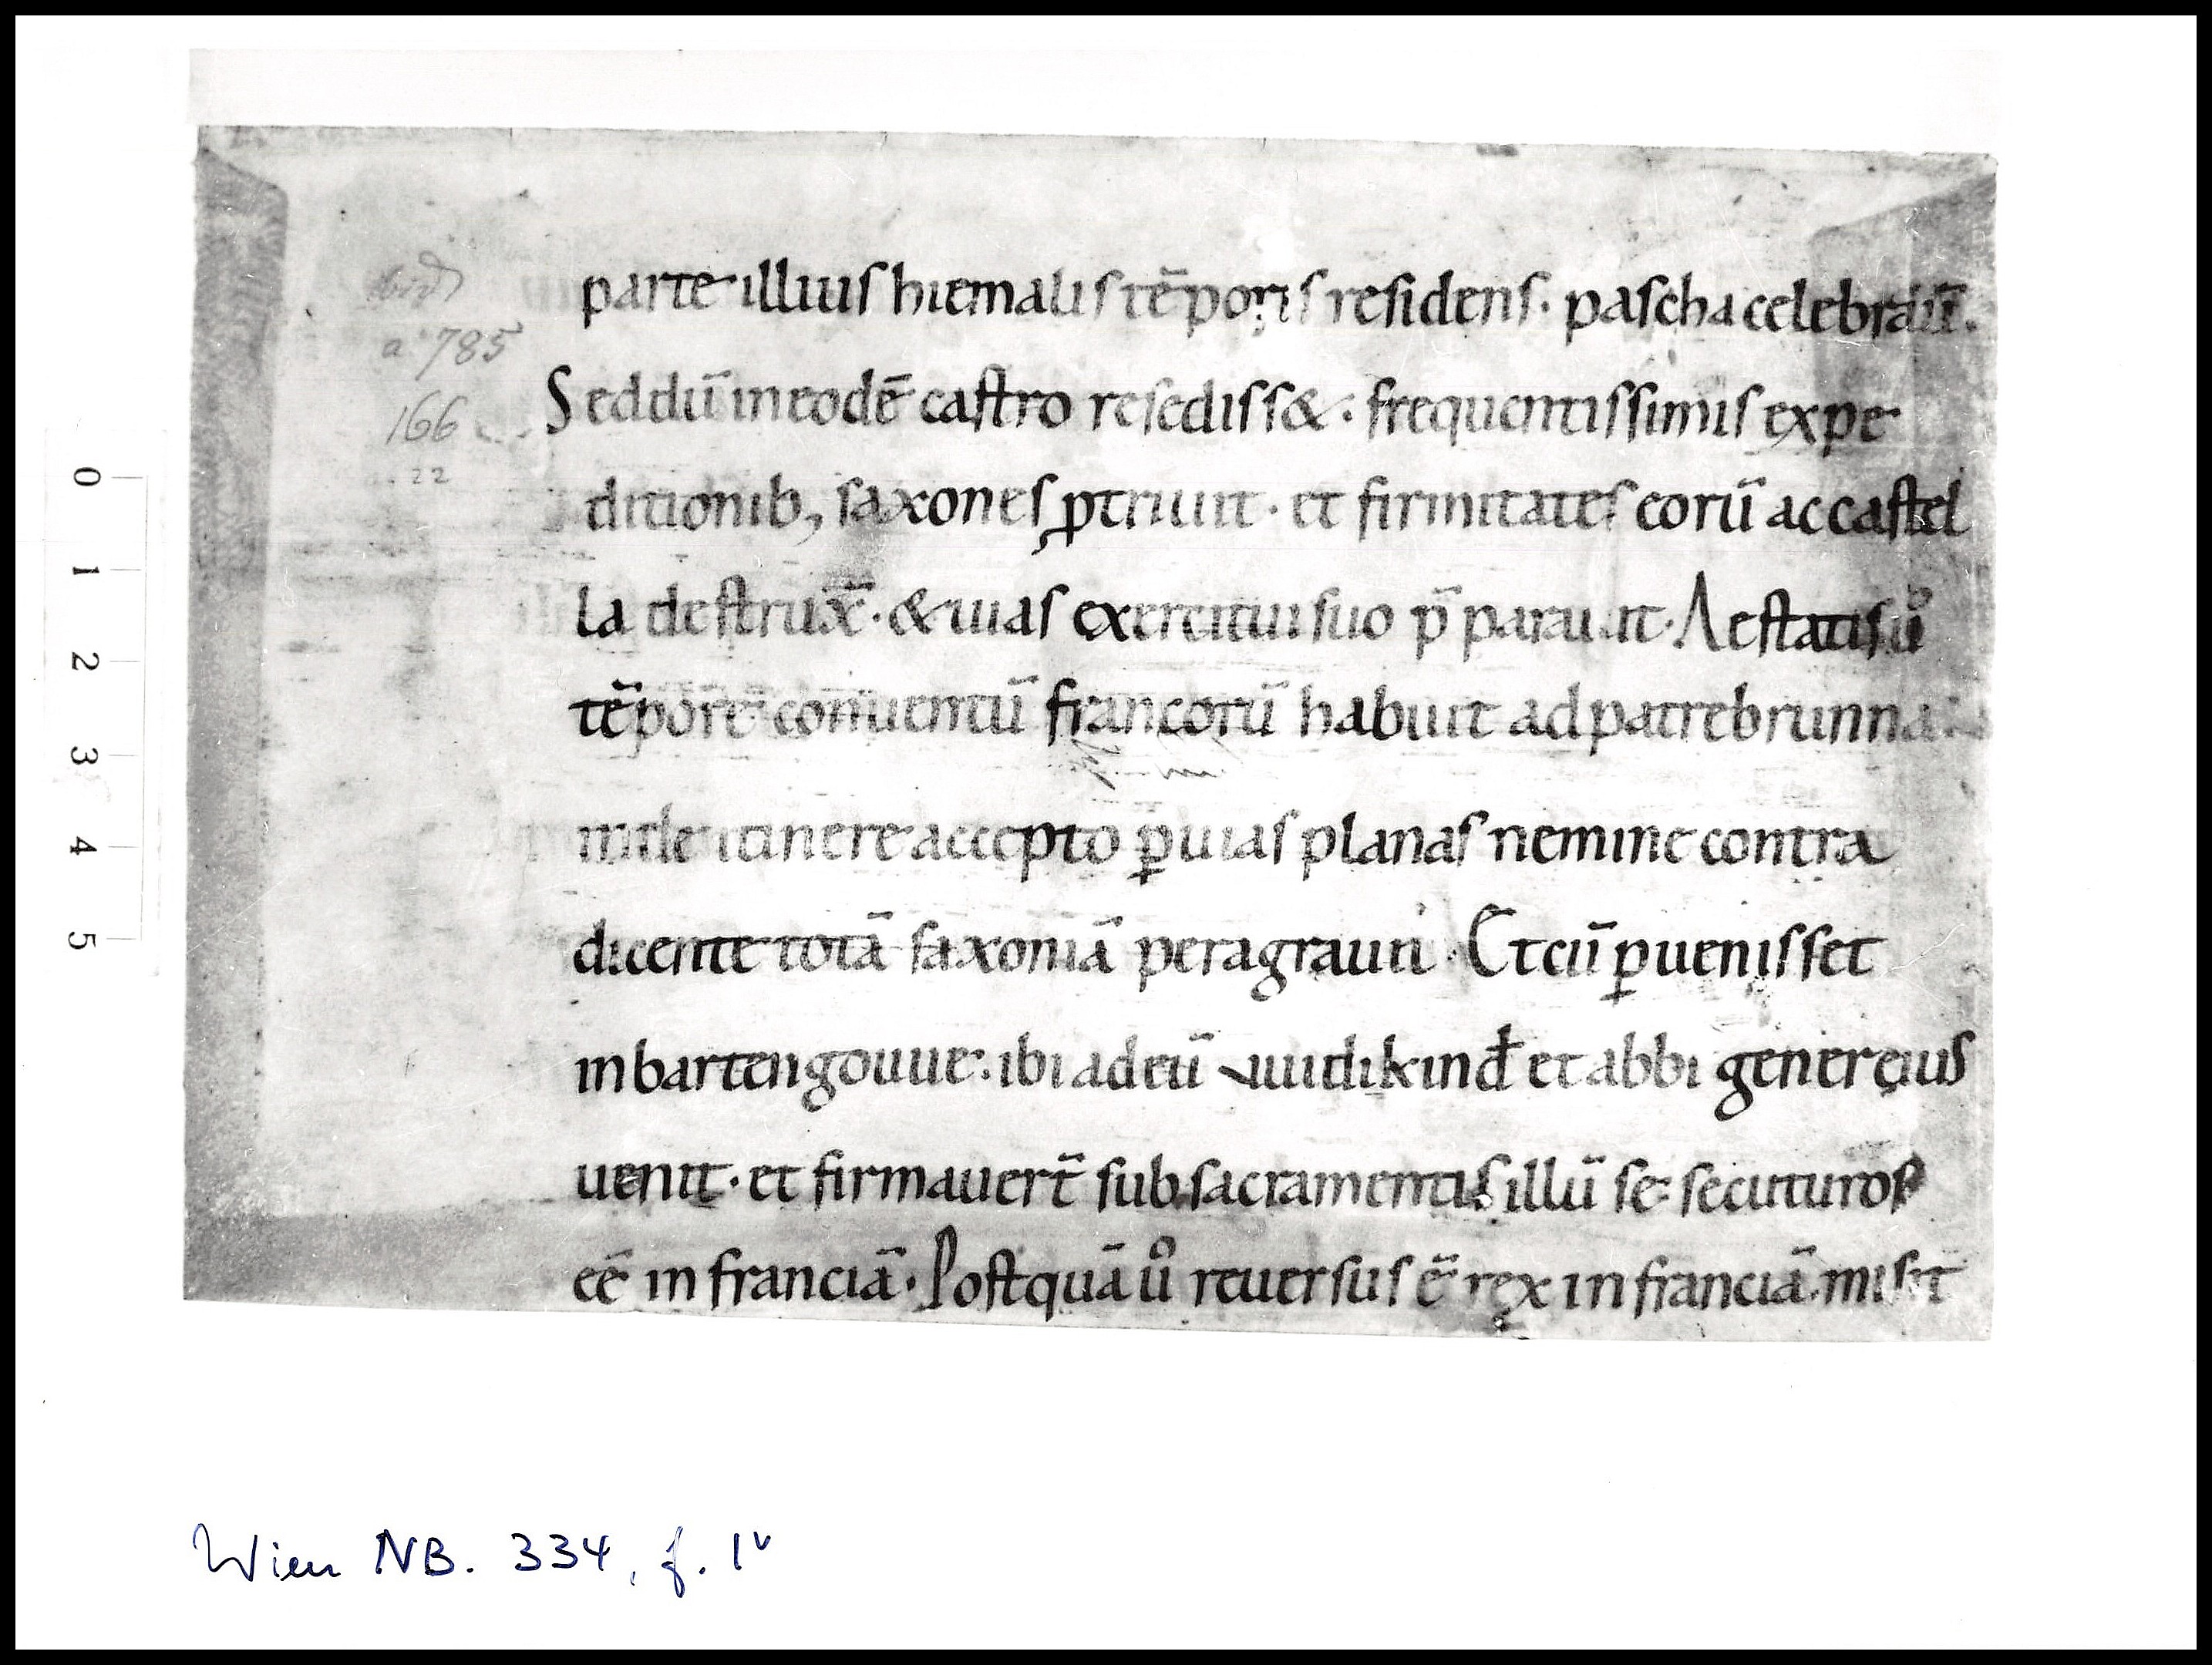 ibid
a. 785
166
22
parte illius hiemalis tēporis residens. pascha celebrauit̄.
Sed dū in eodē castro resediss&. frequentissimis expe
ditionib, saxones ꝓtriuit. et firmitates eorū ac castel
la destrux̄. & uias exercitui suo p̄parauit. Aestatis ů
tēpore conuentū francorū habuit ad patrebrunna
itinere accepto ꝑ uias planas nemine contra
dicente totā saxoniā peragrauit. Et cū ꝑuenisset
in bartengouue. ibi ad eū uuidikind̄ et abbi gener eius
uenit. et firmauert̄ sub sacramentis illū se secuturos
eē in franciā. Postquā ů reuersus ē rex in franciā. misit
0 1 2 3 4 5
Wien NB. 334, f. 1v